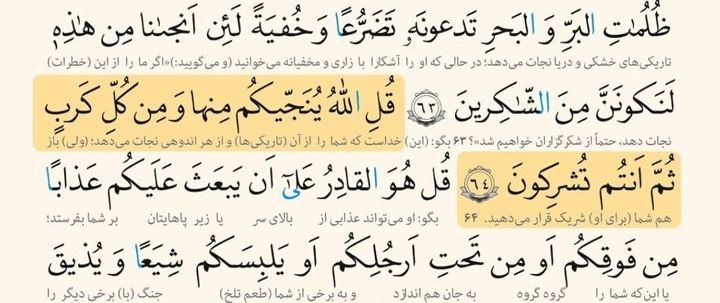 ظُلُماتِ البَرِّ وَ البَحرِ تَدعونَهٗ تَضَرُّعًا وَخُفيَةً لَئِن اَنجىٰنا مِن هٰذِهٖ
تاریکی‌های خشکی و دریا نجات می‌دهد؛ در حالی که او را آشکارا با زاری و مخفیانه می‌خوانید (و می‌گویید:)«اگر ما را از این (خطرات)
لَنَكونَنَّ مِنَ الشّاكِرينَ ٦٣ قُلِ اللّٰهُ يُنَجّيكُم مِنها وَ مِن كُلِّ كَربٍ
نجات دهد، حتماً از شکرگزاران خواهیم شد»؟ ۶۳ بگو: (این) خداست که شما را از آن (تاریکی‌ها) و از هر اندوهی نجات می‌دهد؛ (ولی) باز
ثُمَّ اَنتُم تُشرِكونَ ٦٤ قُل هُوَ القادِرُ عَلىٰٓ اَن يَبعَثَ عَلَيكُم عَذابًا
هم شما (برای او) شریک قرار می‌دهید. ۶۴ بگو: او می‌تواند عذابی از بالای سر یا زیر پاهایتان بر شما بفرستد؛
مِن فَوقِكُم اَو مِن تَحتِ اَرجُلِكُم اَو يَلبِسَكُم شِيَعًا وَ يُذيقَ
یا این‌که شما را گروه گروه به جان هم اندازد و به برخی از شما (طعم تلخ) جنگ (با) برخی دیگر را